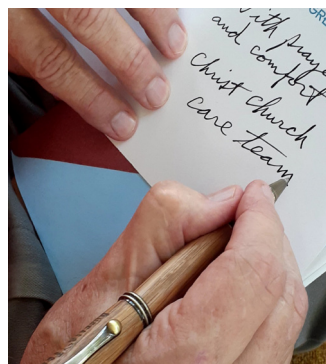 GRE
with praye
and comfort
Christ Church
care team